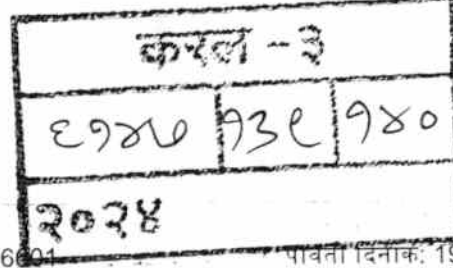 करल - ३
६१४७ १३९ १४०
२०२४
पावती दिनांक: 19